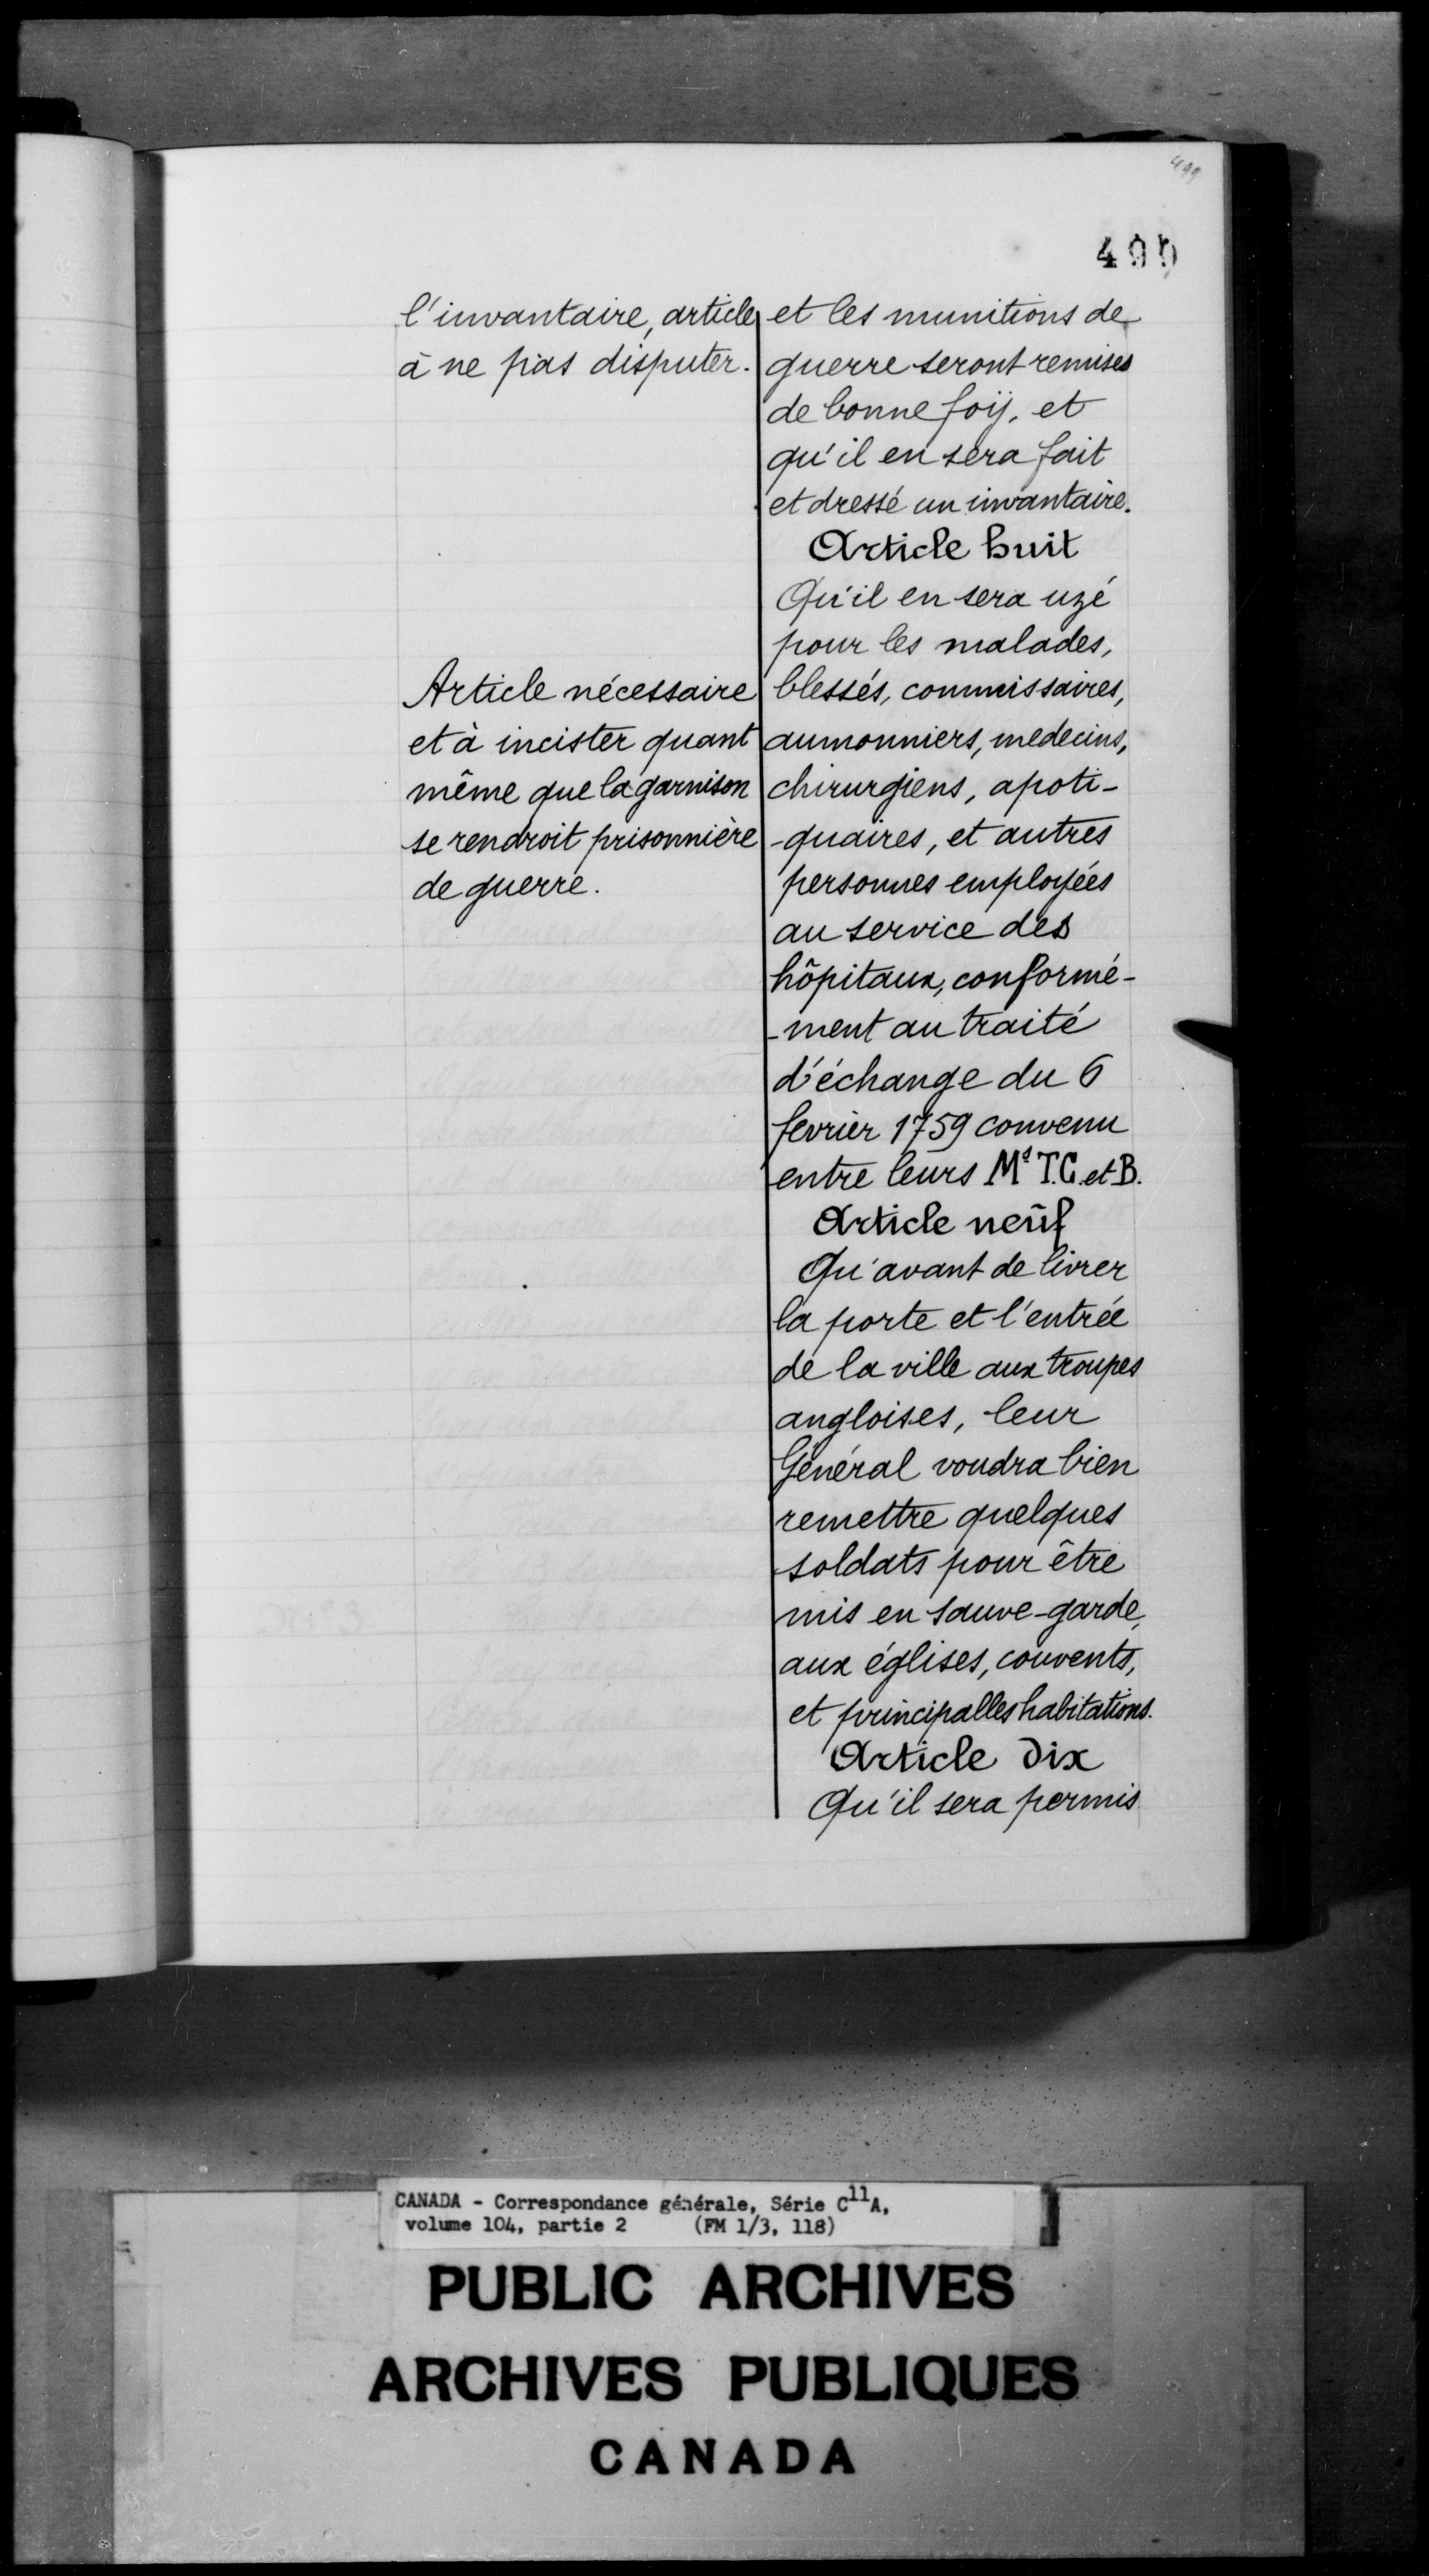 499
l'invantaire, article
à ne pas disputer.
Article nécessaire
et à incister quant
même que la garnison
se rendroit prisonnière
de guerre.
et les munitions de
guerre seront remises
de bonne foij, et
qu'il en sera fait
et dressé un invantaire.
Article huit
Qu'il en sera uzé
pour les malades,
blessés, commissaires,
aumonniers, medecins,
chirurgiens, apoti-
-quaires, et autres
personnes employées
au service des
hôpitaux, conformé-
-ment au traité
d'échange du 6
fevrier 1759 convenu
entre leurs Ms T.C. et B.
Article neûf
Qu'avant de livrer
la porte et l'entrée
de la ville aux troupes
angloises, leur
Général voudra bien
remettre quelques
soldats pour être
mis en sauve-garde,
aux églises, couvents,
et principalles habitations.
Article dix
Qu'il sera permis
CANADA - Correspondance générale, Série C11A,
volume 104, partie 2 (FM 1/3, 118)
PUBLIC ARCHIVES
ARCHIVES PUBLIQUES
CANADA